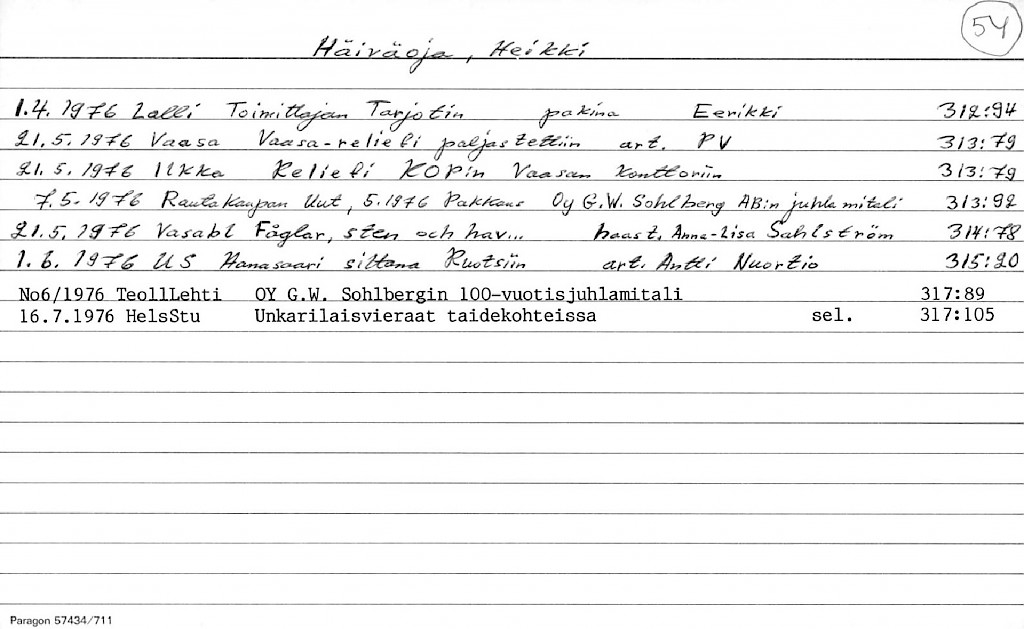 54
Häiväoja, Heikki
1.4. 1976 Lalli Toimittajan Tarjotin pakina Eerikki 312:94
21.5.1976 Vaasa Vaasa-reliefi paljastettiin art. PV 313:79
21.5.1976 Ilkka Reliefi KOPin Vaasan konttoriin 313:79
7.5.1976 Rautakaupan Uut, 5.1976 Pakkaus Oy G.W. Sohlberg AB:n juhlamitali 313:92
21.5.1976 Vasabl Fåglar, sten och hav... haast. Anna-Lisa Sahlström 314:78
1.6.1976 US Hanasaari siltana Ruotsiin art. Antti Nuortio 315:20
No6/1976 TeollLehti OY G.W. Sohlbergin 100-vuotisjuhlamitali 317:89
16.7.1976 HelsStu Unkarilaisvieraat taidekohteissa sel. 317:105
Paragon 57434/711